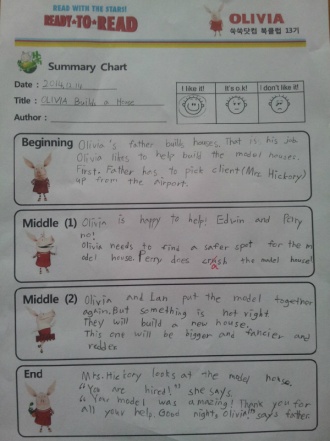 READ WITH THE STARS!
READY-TO-READ
OLIVIA
쑥쑥닷컴 북클럽 13기
Summary Chart
Date : 2014.11.14
I like it!
It's o.k!
I don't like it!
Title : OLIVIA Builds a House
Author :
Beginning
Olivia's father builds houses. That is his job
Olivia likes to help build the model houses.
First, Father has to pick client (Mrs. Hickory)
up from the airport.
Middle (1)
Olivia is happy to help! Edwin and Perry
no!
Olivia needs to find a safer spot for the m
odel house. Perry does crash the model house!
Middle (2)
Olivia and Lan put the model together
again. But something is not right
They will build a new house.
This one will be bigger and fancier and
redder
End
Mrs. Hickory looks at the model house.
"You are hired!" she says.
"Your model was amazing! Thank you for
all your help. Good night, Olivia!" says father.